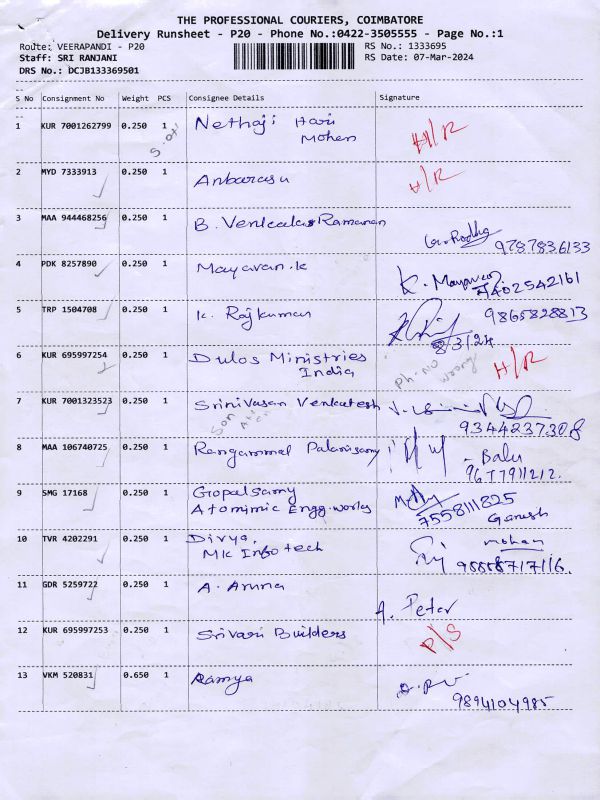 THE PROFESSIONAL COURIERS, COIMBATORE
Delivery Runsheet - P20 - Phone No.:0422-3505555 - Page No.:1
Route: VEERAPANDI - P20
RS No.: 1333695
Staff: SRI RANJANI
RS Date: 07-Mar-2024
DRS No.: DCJB133369501
S No Consignment No Weight PCS Consignee Details Signature
1 KUR 7001262799 0.250 1 Nethaji Hari H/R
Mohen
2 MYD 7333913 0.250 1 Anbarasu H/R
3 MAA 944468256 0.250 1 B. Venkatas Ramanan
9787836133
4 PDK 8257890 0.250 1 Mayavan.k K. Mayavan
9402542161
5 TRP 1504708 0.250 1 K. Rajkumar 9865828813
8/3/24
6 KUR 695997254 0.250 1 Dulos Ministries H/R
India Ph. no
wrong
7 KUR 7001323523 0.250 1 Srinivasan Venkatesh
9344237308
8 MAA 106740725 0.250 1 Rangammal Palanisamy - Balu
9677911212.
9 SMG 17168 0.250 1 Gopalsamy
Atomimic Engg.works 7558111825
Ganesh
10 TVR 4202291 0.250 1 Divya, mohan
MK Infotech
11 GDR 5259722 0.250 1 A. Amna
A. Peter
12 KUR 695997253 0.250 1 Srivari Builders P/S
13 VKM 520831 0.650 1 Ramya
9894104985